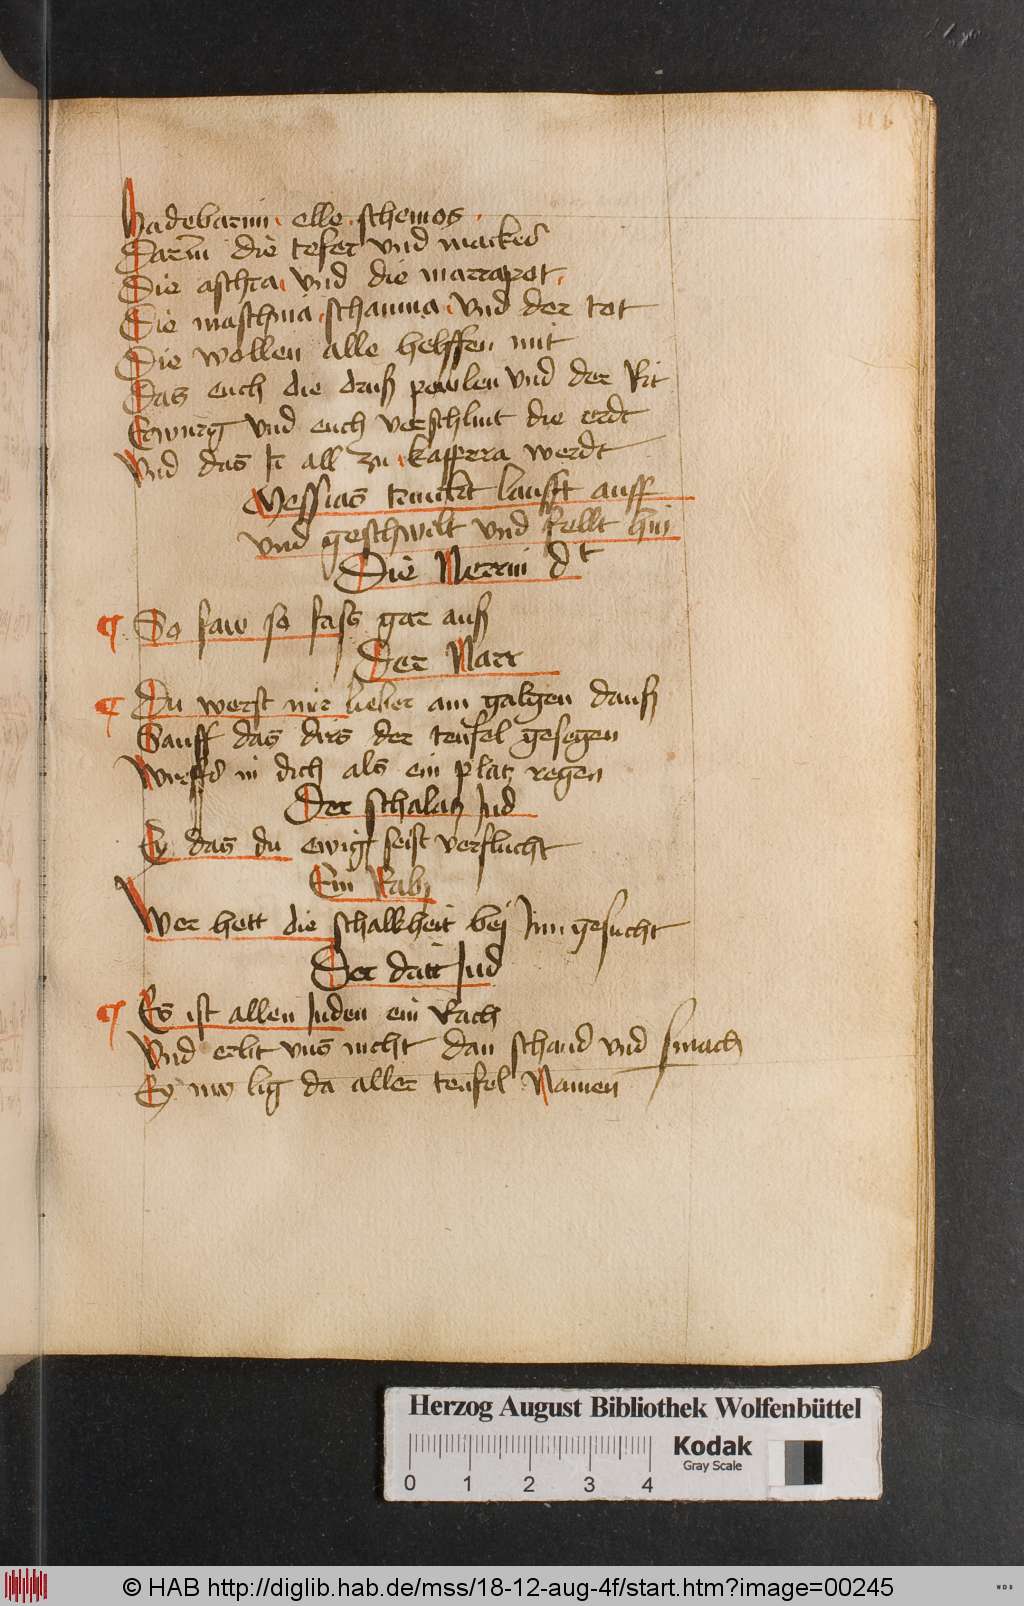 Hadebarim · elle · schemos ·
Darm̄ die tefer vnd macked
Die aschta · vnd die marrapot ·
Die maschma · schamma · vnd der tot
Die wollen alle helffen mit
Das euch die druß pewlen vnd der Rit
Erwurg vnd euch verschlint die erdt
Vnd das Ir all zu · kappora werdt
Messias trinckt laufft auff
vnd geschwilt vnd fellt hin
Die Nerrin dt
¶ So saw so safs gar auß
Der Narr
¶ Du werst mir lieber am galgen dauß
Sauff das dirs der teufel gesegen
Wurffs in dich als ein platz regen
Der schalatz Jud
Ey das du ewig seist verflucht
Ein Rabi
Wer hett die schalkheit bej Im gesucht
Der datt Jud
¶ Es ist allen Juden ein Rach
Vnd erlit vns nicht dan schand vnd smach
Ey nw lig da aller teufel Namen
Herzog August Bibliothek Wolfenbüttel
Kodak
Gray Scale
0 1 2 3 4
© HAB http://diglib.hab.de/mss/18-12-aug-4f/start.htm?image=00245